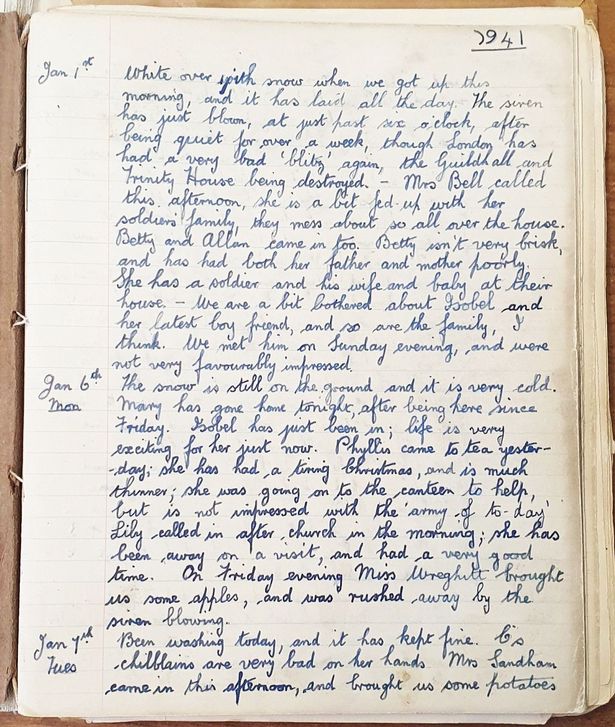 1941
Jan 1st White over with snow when we got up this
morning, and it has laid all the day. The siren
has just blown, at just past six o'clock, after
being quiet for over a week, though London has
had a very bad 'blitz' again, the Guildhall and
Trinity House being destroyed. - Mrs Bell called
this afternoon, she is a bit fed-up with her
soldiers' family, they mess about so all over the house.
Betty and Allan came in too. Betty isn't very brisk,
and has had both her father and mother poorly.
She has a soldier and his wife and baby at their
house. - We are a bit bothered about Isobel and
her latest boy friend, and so are the family, I
think. We met him on Sunday evening, and were
not very favourably impressed.
Jan 6th The snow is still on the ground and it is very cold.
Mon Mary has gone home tonight, after being here since
Friday. Isobel has just been in; life is very
exciting for her just now. Phyllis came to tea yester-
-day; she has had a tiring Christmas, and is much
thinner; she was going on to the canteen to help,
but is not impressed with the army of to-day.
Lily called in after church in the morning; she has
been away on a visit, and had a very good
time. On Friday evening Miss Wreghitt brought
us some apples, and was rushed away by the
siren blowing.
Jan 7th Been washing today, and it has kept fine. C's
Tues chilblains are very bad on her hands Mrs Sandham
came in this afternoon, and brought us some potatoes